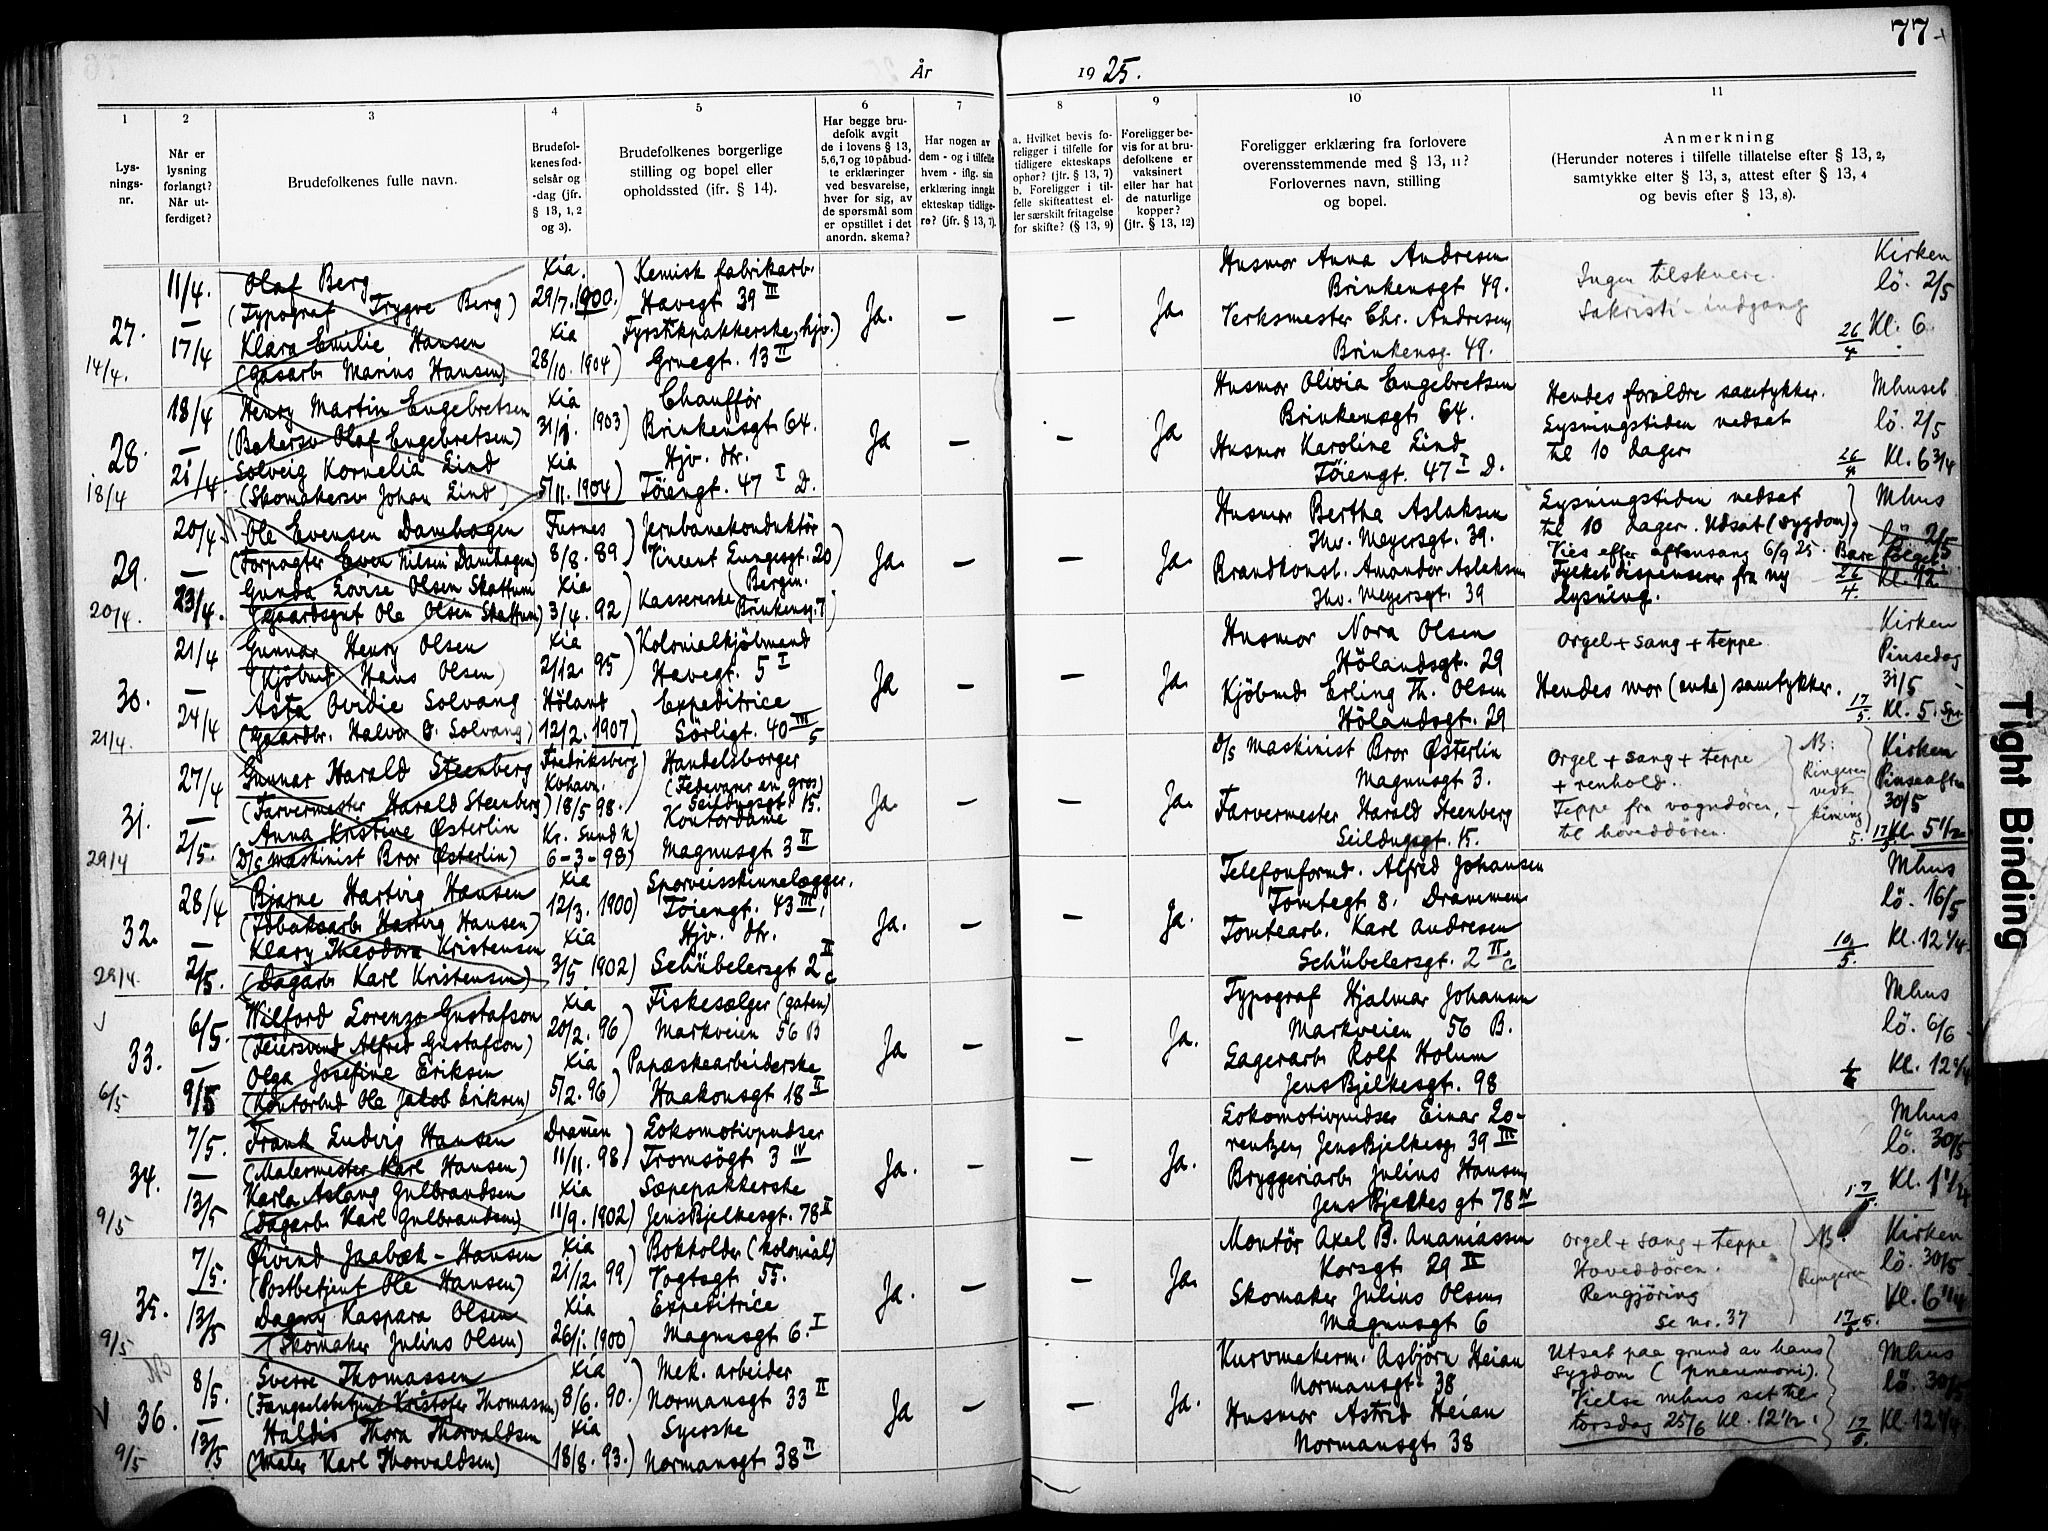 77
År 1925.
1 2 3 4 5 6 7 8 9 10 11
Lysningsnr.
Når er lysning forlangt? Når utferdiget?
Brudefolkenes fulle navn.
Brudefolkenes fødselsår og -dag (jfr. § 13, 1, 2 og 3).
Brudefolkenes borgerlige stilling og bopel eller opholdssted (jfr. § 14).
Har begge brudefolk avgit de i lovens § 13, 5,6,7 og 10 påbudte erklæringer ved besvarelse, hver for sig, av de spørsmål som er opstillet i det anordn. skema?
Har nogen av dem - og i tilfelle hvem - iflg. sin erklæring inngått ekteskap tidligere? (jfr. § 13, 7).
a. Hvilket bevis foreligger i tilfelle for tidligere ekteskaps ophør? (jfr. § 13, 7) b. Foreligger i tilfelle skifteattest eller særskilt fritagelse for skifte? (§ 13, 9)
Foreligger bevis for at brudefolkene er vaksinert eller har hat de naturlige kopper? (jfr. § 13, 12)
Foreligger erklæring fra forlovere overensstemmende med § 13, 11? Forlovernes navn, stilling og bopel.
Anmerkning (Herunder noteres i tilfelle tillatelse efter § 13, 2, samtykke efter § 13, 3, attest efter § 13, 4 og bevis efter § 13, 8).
27. 14/4.
11/4. — 17/4
Olaf Berg
(Typograf Trygve Berg)
Klara Emilie Hansen
(Gasarb. Marius Hansen)
Xia. 29/7. 1900.)
Xia 28/10. 1904)
Kemisk fabrikarb.
Havegt 39 III
Fyrstikpakkerske, hjv.)
Gruegt. 13 II
Ja. — — Ja.
Husmor Anna Andresen
Brinkensgt 49.
Verksmester Chr. Andresen,
Brinkensg. 49.
Ingen tilskuere.
Sakristi-indgang
26/4
Kirken
lö. 2/5
Kl. 6.
28. 18/4
18/4 — 21/4.
Henry Martin Engebretsen
(Bakersv. Olaf Engebretsen)
Solveig Kornelia Lind
(Skomakersv. Johan Lind)
Xia 31/8. 1903)
Xia 5/11. 1904)
Chauffør
Brinkensgt 64.
Hjv. dtr.
Töiengt. 47 I D.
Ja — — Ja
Husmor Olivia Engebretsen
Brinkensgt 64.
Husmor Karoline Lind
Töiengt. 47 I D.
Hendes foreldre samtykker.
Lysningstiden nedsat
til 10 dager
26/4
Mhuset
lö. 2/5
Kl. 6 3/4
29. 20/4.
20/4 — 23/4.
Ole Evensen Damhagen
(Forpagter Even Nilsen Damhagen)
Gunda Lovise Olsen Skattum
(Gaardsgut Ole Olsen Skattum)
Furnes 8/8. 89)
Xia 3/4. 92)
Jernbanekonduktör
Vincent Lungesgt. 20)
Bergen.
Kassererske
Brinkensg. 7
Ja. — — Ja.
Husmor Bertha Aslaksen
Thv. Meyersgt. 39.
Brandkonst. Amandor Aslaksen
Thv. Meyersgt. 39
Lysningstiden nedsat
til 10 dager. Utsat (sygdom).
Vies efter aftensang 6/9 25. Bare følget.
Fylket dispenserer fra ny
lysning.
26/4.
Mhus
lö. 2/5
Kl. 12
30. 21/4.
21/4 — 24/4
Gunnar Henry Olsen
(Kjöbmd Hans Olsen)
Asta Ovidie Solvang
(Gaardbr. Halvor O. Solvang)
Xia 21/12. 95)
Höland 12/2. 1907)
Kolonialkjöbmand
Havegt. 5 I
Expeditrice
Sörligt. 40 III 5
Ja — — Ja.
Husmor Nora Olsen
Hölandsgt. 29
Kjöbmd. Erling Th. Olsen
Hölandsgt. 29
Orgel + sang + teppe
Hendes mor (enke) samtykker.
17/5.
Kirken
Pinsedag
31/5
Kl. 5.
31. 29/4
27/4 — 2/5.
Gunnar Harald Steenberg
(Farvermester Harald Steenberg)
Anna Kristine Østerlin
(D/s maskinist Bror Østerlin)
Fredriksberg)
Kbhavn. 18/5 98.
Kr. Sund N)
6-3-98)
Handelsborger
(Fedevarer en gros)
Seildugsgt. 15.
Kontordame
Magnusgt 3 II
Ja. — — Ja.
D/s maskinist Bror Østerlin
Magnusgt 3.
Farvermester Harald Steenberg
Seildugsgt. 15.
Orgel + sang + teppe
+ renhold.
Teppe fra vogndören,
til hoveddören.
NB:
Ringeren
vedk.
kiming
17/5.
Kirken
Pinseaften
30/5
Kl. 5 1/2
32. 29/4.
28/4 — 2/5.
Bjarne Hartvig Hansen
(Tobaksarb. Hartvig Hansen)
Klary Theodora Kristensen
(Dagarb. Karl Kristensen)
Xia 12/3. 1900)
Xia 3/5 1902)
Sporveisskinnelægger.
Töiengt. 43 III,
Hjv. dtr.
Schübelersgt 2 II c
Ja. — — Ja.
Telefonformd. Alfred Johansen
Tomtegt 8. Drammen
Tomtearb. Karl Andresen
Schübelersgt. 2 II c
10/5.
Mhus
lö. 16/5
Kl. 12 1/4
33. 6/5
6/5. — 9/5
Wilford Lorenzo Gustafson
(Feiersvend Alfred Gustafson)
Olga Josefine Eriksen
(Kontorbud Ole Jakob Eriksen)
Xia 20/2. 96)
Xia 5/2. 96)
Fiskesælger (gaten)
Markveien 56 B
Papæskearbeiderske
Haakonsgt 18 II
Ja — — Ja.
Typograf Hjalmar Johansen
Markveien 56 B.
Lagerarb. Rolf Holum
Jens Bjelkesgt. 98
Mhus
lö. 6/6
Kl. 12 1/4
34. 9/5
7/5. — 13/5
Frank Ludvig Hansen
(Malermester Karl Hansen)
Karla Aslaug Gulbrandsen
(Dagarb. Karl Gulbrandsen)
Dramen 11/11. 98)
Xia 11/9. 1902)
Lokomotivpudser
Tromsögt 3 IV
Sæpepakkerske
Jens Bjelkesgt. 78 II
Ja. — — Ja.
Lokomotivpudser Einar Lorentzen,
Jens Bjelkesg. 39 III
Bryggeriarb. Julius Hansen
Jens Bjelkes gt 78 IV
17/5.
Mhus
lö. 30/5
Kl. 1 1/4
35. 9/5
7/5. 13/5
Øivind Jaabæk-Hansen
(Postbetjent Ole Hansen)
Dagny Kaspara Olsen
(Skomaker Julius Olsen)
Xia 21/12. 99)
Xia 26/1. 1900)
Bokholder (kolonial)
Vogtsgt. 55.
Expeditrice
Magnusgt 6. I
Ja. — — Ja.
Montör Axel B. Ananiassen
Korsgt 29 IV
Skomaker Julius Olsen,
Magnusgt 6
Orgel + sang + teppe
Hoveddören.
Rengjöring
Se nr. 37
NB:
Ringeren
17/5.
Kirken
lö. 30/5
Kl. 6 1/4
36. 9/5
8/5. — 13/5
Sverre Thomassen
(Fængselsbetjent Kristofer Thomassen)
Haldis Thora Thorvaldsen
(Maler Karl Thorvaldsen)
Xia 8/6. 90.)
Xia 18/8. 93.)
Mek. arbeider
Normansgt 33 II
Syerske
Normansgt 38 II
Ja — — Ja.
Kurvmakerm. Asbjörn Heian
Normansgt 38
Husmor Astrid Heian
Normansgt 38
Utsat paa grund av hans
sygdom (pneumoni).
Vielse mhus sat til
torsdag 25/6 Kl. 12 1/2.
17/5.
Mhus
lö. 30/5
Kl. 12 1/4
Tight Binding